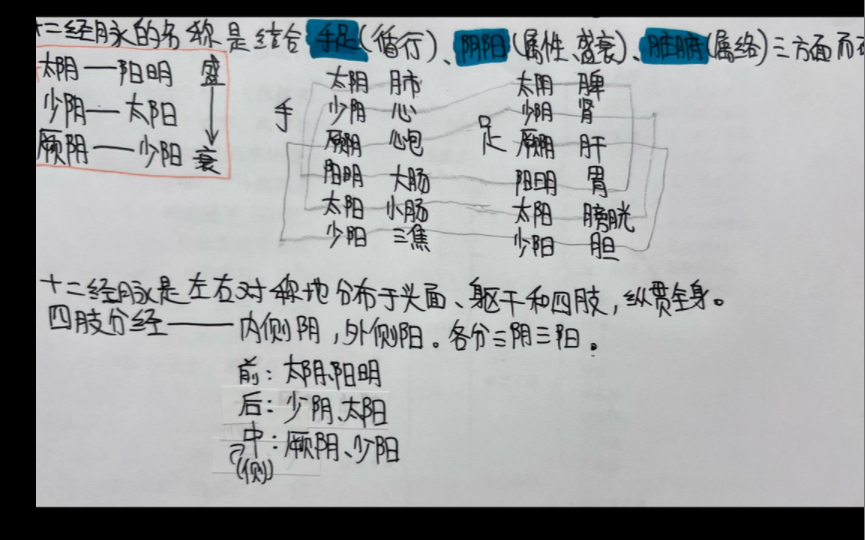 十二经脉的名称是结合手足(循行)、阴阳(属性、盛衰)、脏腑(属络)三方面而
太阴——阳明 盛
少阴——太阳
厥阴——少阳 衰
手
太阴 肺
少阴 心
厥阴 心包
阳明 大肠
太阳 小肠
少阳 三焦
足
太阴 脾
少阴 肾
厥阴 肝
阳明 胃
太阳 膀胱
少阳 胆
十二经脉是左右对称地分布于头面、躯干和四肢,纵贯全身。
四肢分经——内侧阴,外侧阳。各分三阴三阳。
前:太阴、阳明
后:少阴、太阳
中:厥阴、少阳
(侧)